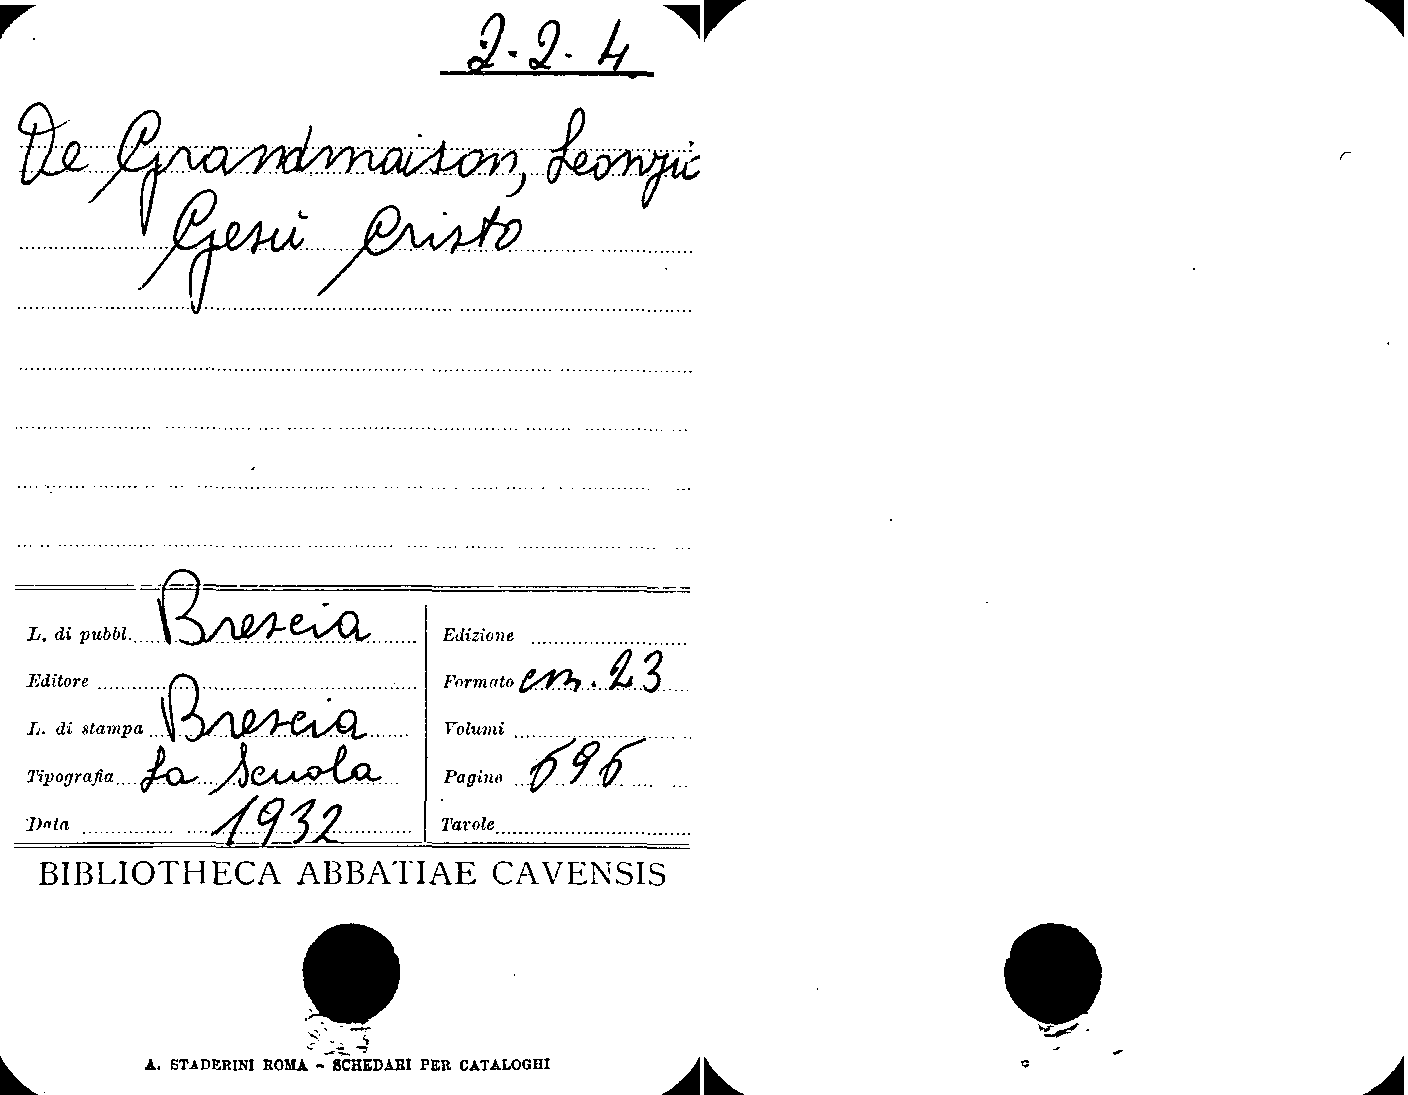 2-2-4
De Grandmaison, Leonzio
Gesù Cristo
L. di pubbl. Brescia
Editore
L. di stampa Brescia
Tipografia La Scuola
Data 1932
Edizione
Formato cm. 23
Volumi
Pagine 696
Tavole
BIBLIOTHECA ABBATIAE CAVENSIS
A. STADERINI ROMA - SCHEDARI PER CATALOGHI